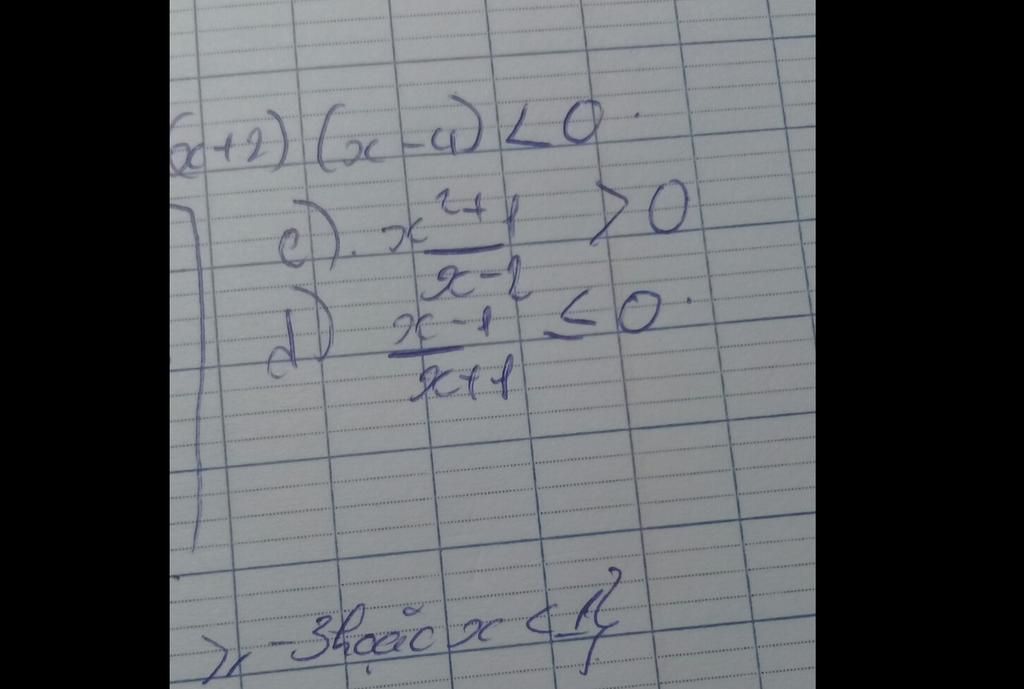 (x+2) (x-4) < 0.
c). x²+1 / x-2 > 0
d) x-1 / x+1 ≤ 0.
-3 hoặc x <